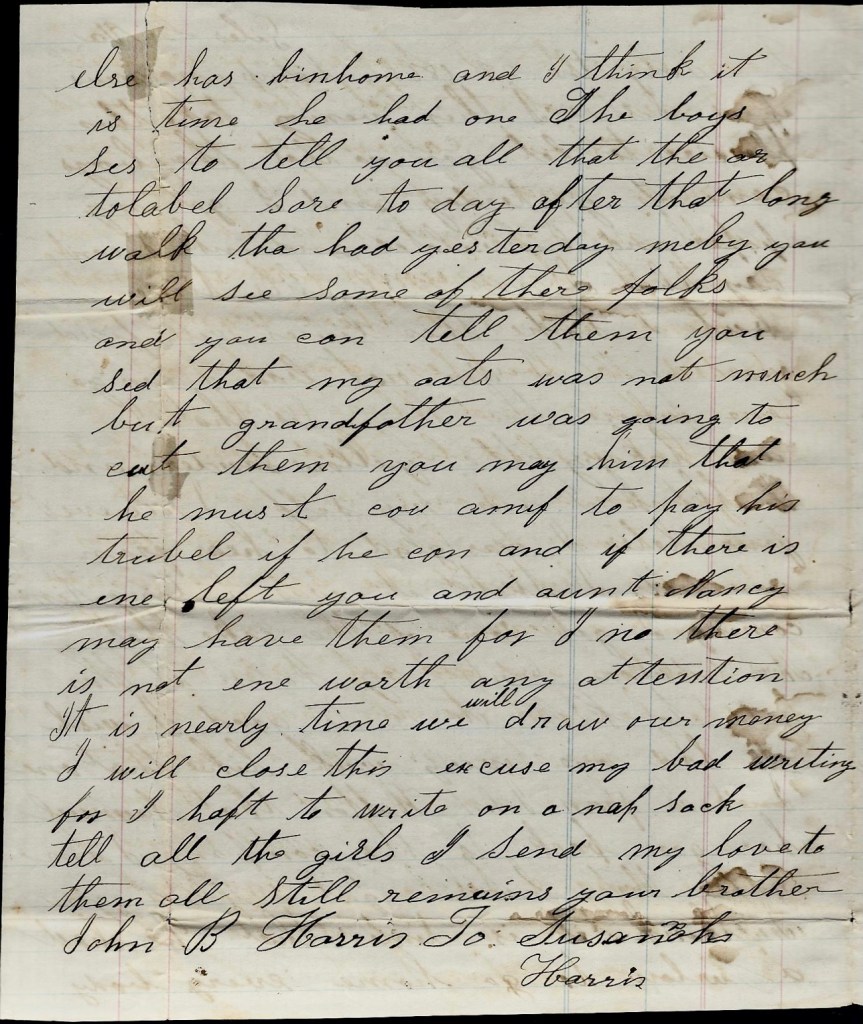 else has binhome and I think it
is time he had one The boys
ses to tell you all that the ar
tolabel Sore to day after that long
walk tha had yesterday meby you
will see some of there folks
and you can tell them you
sed that my oats was not much
but grandfather was going to
cut them you may him that
he must to pay his
trubel if he con and if there is
ene left you and aunt Nancy
may have them for I no there
is not ene worth any attention
It is nearly time we will draw our money
I will close this excuse my bad writing
for I haft to write on a nap sack
tell all the girls I send my love to
them all Still remains your brother
John B Harris To Susannah
Harris